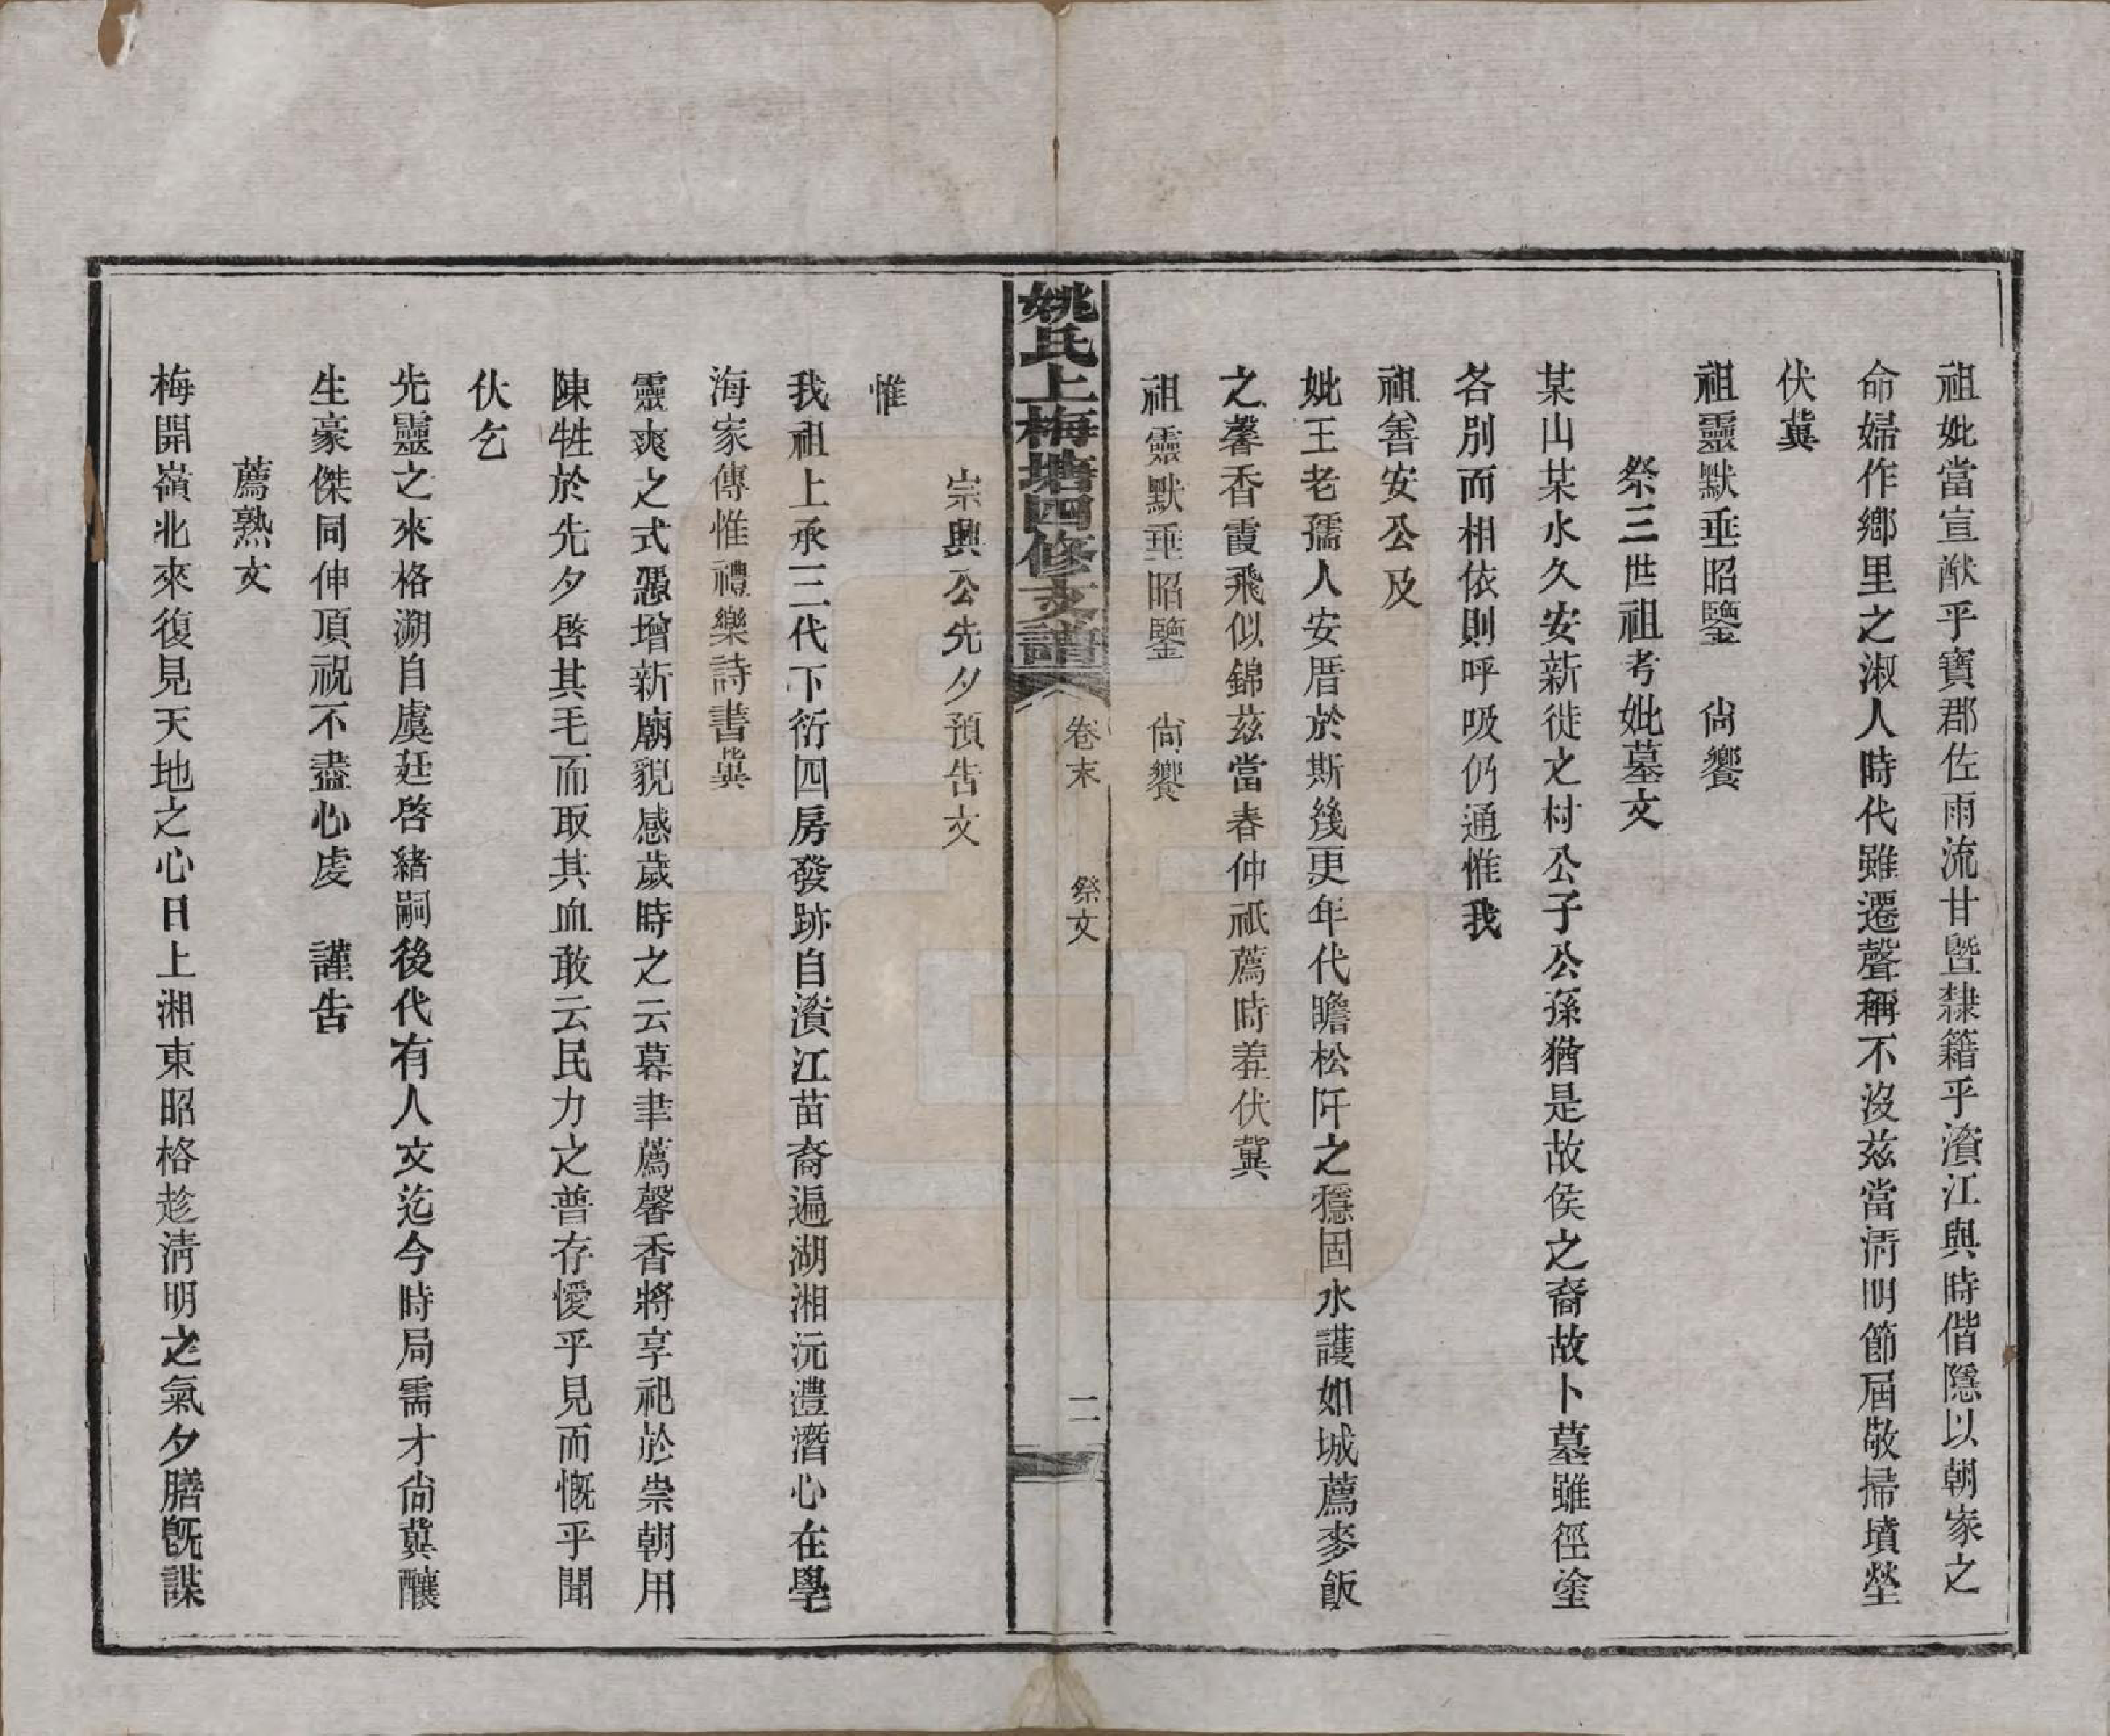 祖妣當宣猷乎寳郡佐雨流甘曁隸籍乎濱江與時偕隱以朝家之
命婦作鄉里之淑人時代雖遷聲稱不沒兹當淸明節屆敬掃墳塋
伏冀
祖靈默垂昭鑒　尙饗
祭三世祖考妣墓文
某山某水久安新徙之村公子公孫猶是故侯之裔故卜墓雖徑塗
各別而相依則呼吸仍通惟我
祖善安公及
妣王老孺人安厝於斯幾更年代瞻松阡之穩固水護如城薦麥飯
之馨香霞飛似錦茲當春仲祇薦時羞伏冀
祖靈默垂昭鑒　尙饗
姚氏上梅塘四修支譜　卷末　祭文　二
宗興公先夕預告文
惟
我祖上承三代下衍四房發跡自濱江苗裔遍湖湘沅澧潛心在學
海家傳惟禮樂詩書冀
靈爽之式憑增新廟貌感歲時之云暮聿薦馨香將享祀於崇朝用
陳牲於先夕啓其毛而取其血敢云民力之普存僾乎見而慨乎聞
伏乞
先靈之來格溯自虞廷啓緒嗣後代有人文迄今時局需才尙冀釀
生豪傑同伸頂祝不盡心虔　謹告
薦熟文
梅開嶺北來復見天地之心日上湘東昭格趁淸明之氣夕膳旣謀